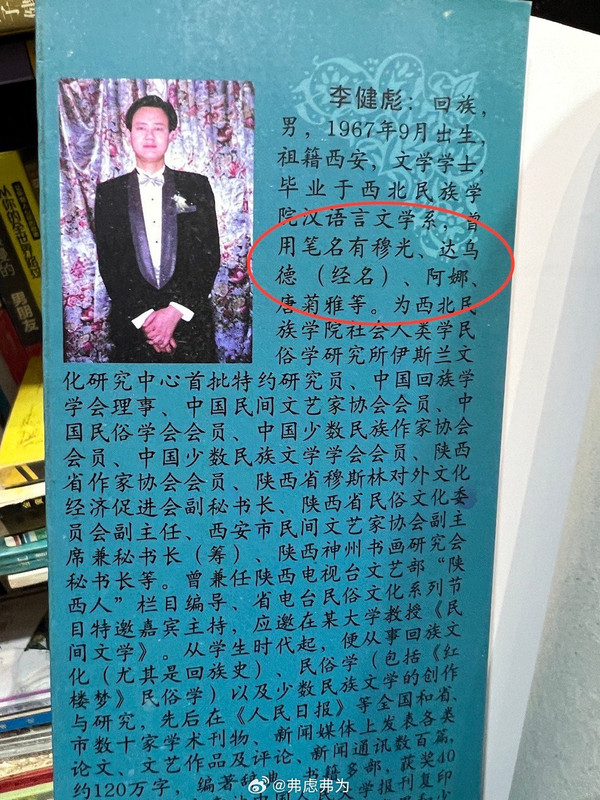 李健彪：回族，
男，1967年9月出生，
祖籍西安，文学学士，
毕业于西北民族学
院汉语言文学系，曾
用笔名有穆光、达乌
德（经名）、阿娜、
唐菊雅等。为西北民
族学院社会人类学民
俗学研究所伊斯兰文
化研究中心首批特约研究员、中国回族学
学会理事、中国民间文艺家协会会员、中
国民俗学会会员、中国少数民族作家协会
会员、中国少数民族文学学会会员、陕西
省作家协会会员、陕西省穆斯林对外文化
经济促进会副秘书长、陕西省民俗文化委
员会副主任、西安市民间文艺家协会副主
席兼秘书长（筹）、陕西神州书画研究会
秘书长等。曾兼任陕西电视台文艺部“陕
西人”栏目编导、省电台民俗文化系列节
目特邀嘉宾主持，应邀在某大学教授《民
间文学》。从学生时代起，便从事回族文
化（尤其是回族史）、民俗学（包括《红
楼梦》民俗学）以及少数民族文学的创作
与研究，先后在《人民日报》等全国和省、
市数十家学术刊物、新闻媒体上发表各类
论文、文艺作品及评论、新闻通讯数百篇，
约120万字，编著辞典、书籍多部，获奖40
中国人民大学报刊复印
从你的全世界
男朋友
@弗虑弗为